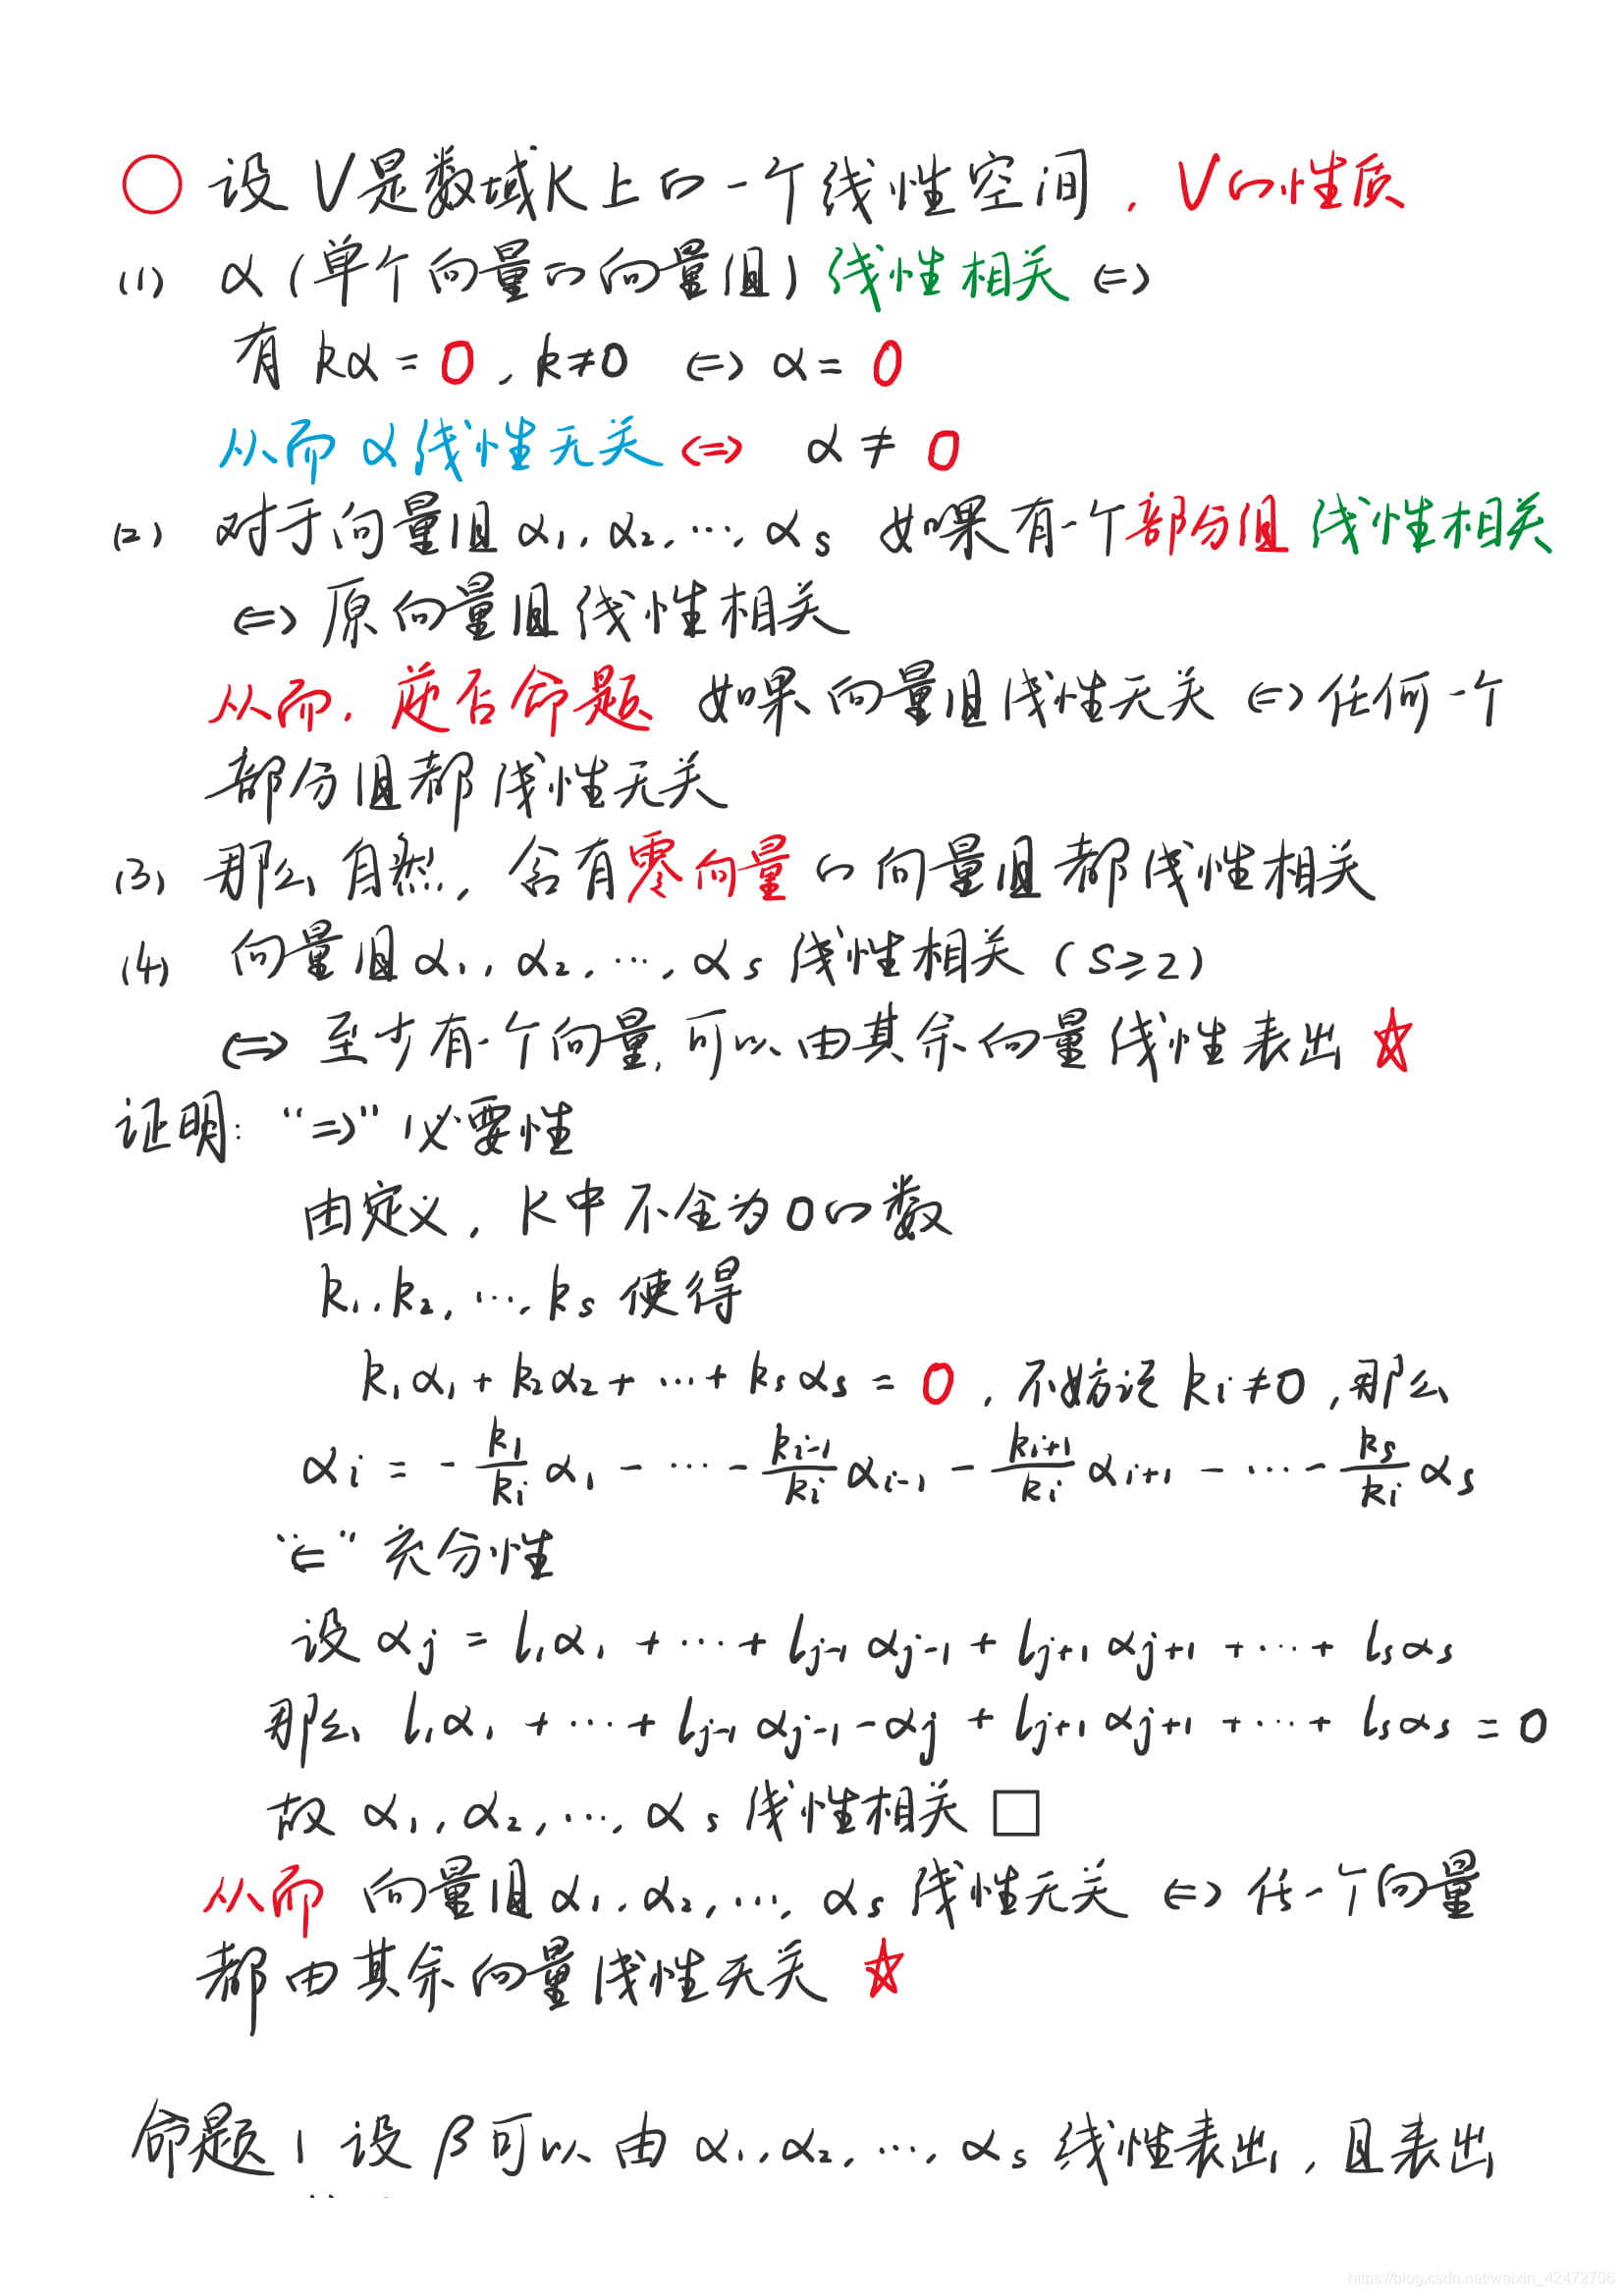 ○ 设 V是数域K上的一个线性空间，V的性质
(1) α (单个向量的向量组) 线性相关 ⇔
有 kα = 0，k≠0 ⇔ α = 0
从而 α 线性无关 ⇔ α ≠ 0
(2) 对于向量组 α₁, α₂, …, αs 如果有一个部分组 线性相关
⇔ 原向量组线性相关
从而，逆否命题 如果向量组线性无关 ⇔ 任何一个
部分组都线性无关
(3) 那么自然，含有零向量的向量组都线性相关
(4) 向量组 α₁, α₂, …, αs 线性相关 (s≥2)
⇔ 至少有一个向量，可以由其余向量线性表出 ☆
证明: “⇒” 必要性
由定义，K中不全为0的数
k₁, k₂, …, ks 使得
k₁α₁ + k₂α₂ + … + ksαs = 0，不妨设 ki≠0，那么
αi = - k₁/ki α₁ - … - ki-1/ki αi-1 - ki+1/ki αi+1 - … - ks/ki αs
“⇐” 充分性
设 αj = l₁α₁ + … + lj-1 αj-1 + lj+1 αj+1 + … + lsαs
那么 l₁α₁ + … + lj-1 αj-1 - αj + lj+1 αj+1 + … + lsαs = 0
故 α₁, α₂, …, αs 线性相关 □
从而 向量组 α₁, α₂, …, αs 线性无关 ⇔ 任一个向量
都由其余向量线性无关 ☆
命题1 设 β 可以由 α₁, α₂, …, αs 线性表出，且表出
https://blog.csdn.net/weixin_42472706